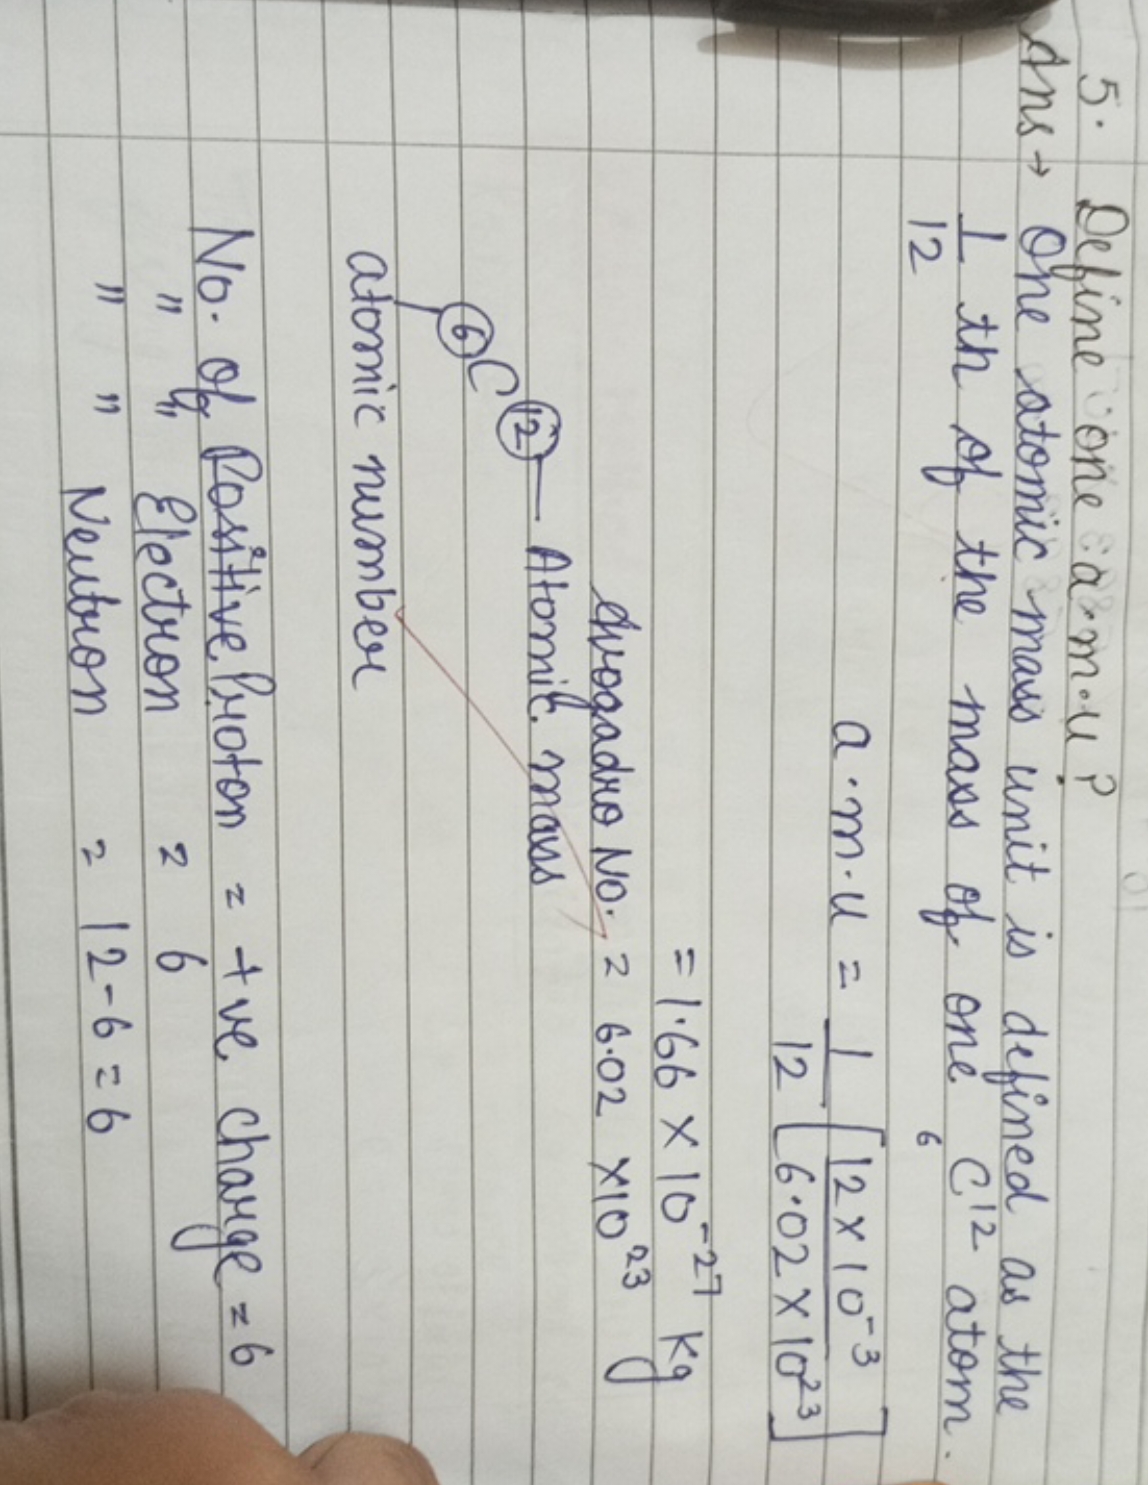 5. Define one a.m.u?
Ans → One atomic mass unit is defined as the
1/12 th of the mass of one ₆C¹² atom.
a.m.u = 1/12 [12 × 10⁻³ / 6.02 × 10²³]
= 1.66 × 10⁻²⁷ kg
Avogadro No. = 6.02 × 10²³
₆C¹² — Atomic mass
atomic number
No. of Positive Proton = +ve charge = 6
" " Electron = 6
" " Neutron = 12 - 6 = 6